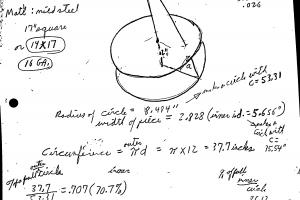 Matl: mild steel
17" square
or 14X17
16 GA.
.026
a
make a circle with
C = 53.31
Radius of circle = 8.484"
width of piece = 2.828 (inner rd. = 5.656"
circle with
C =
35.54"
outer
Circumference = πd = π × 12 = 37.7 inches
outer
of pot circle
inner
% of pot
inner
circle
37.7
53.31 = .707 (70.7%)